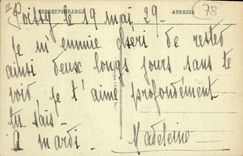 II
CORRESPONDANCE
ADRESSE
78
Poissy le 19 mai 29.
Je m'ennuie de rester
ainsi deux longs jours sans te
voir je t'aime profondément
tu sais.
A mardi.
Madeleine